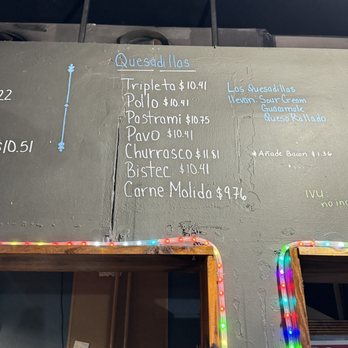 Quesadillas
Tripleta $10.41
Pollo $10.41
Pastrami $10.75
Pavo $10.41
Churrasco $11.81
Bistec $10.41
Carne Molida $9.76
Los Quesadillas
llevan Sour Cream
Guacamole
Queso Rallado
* Añade Bacon $1.36
IVU
no inc
22
$10.51